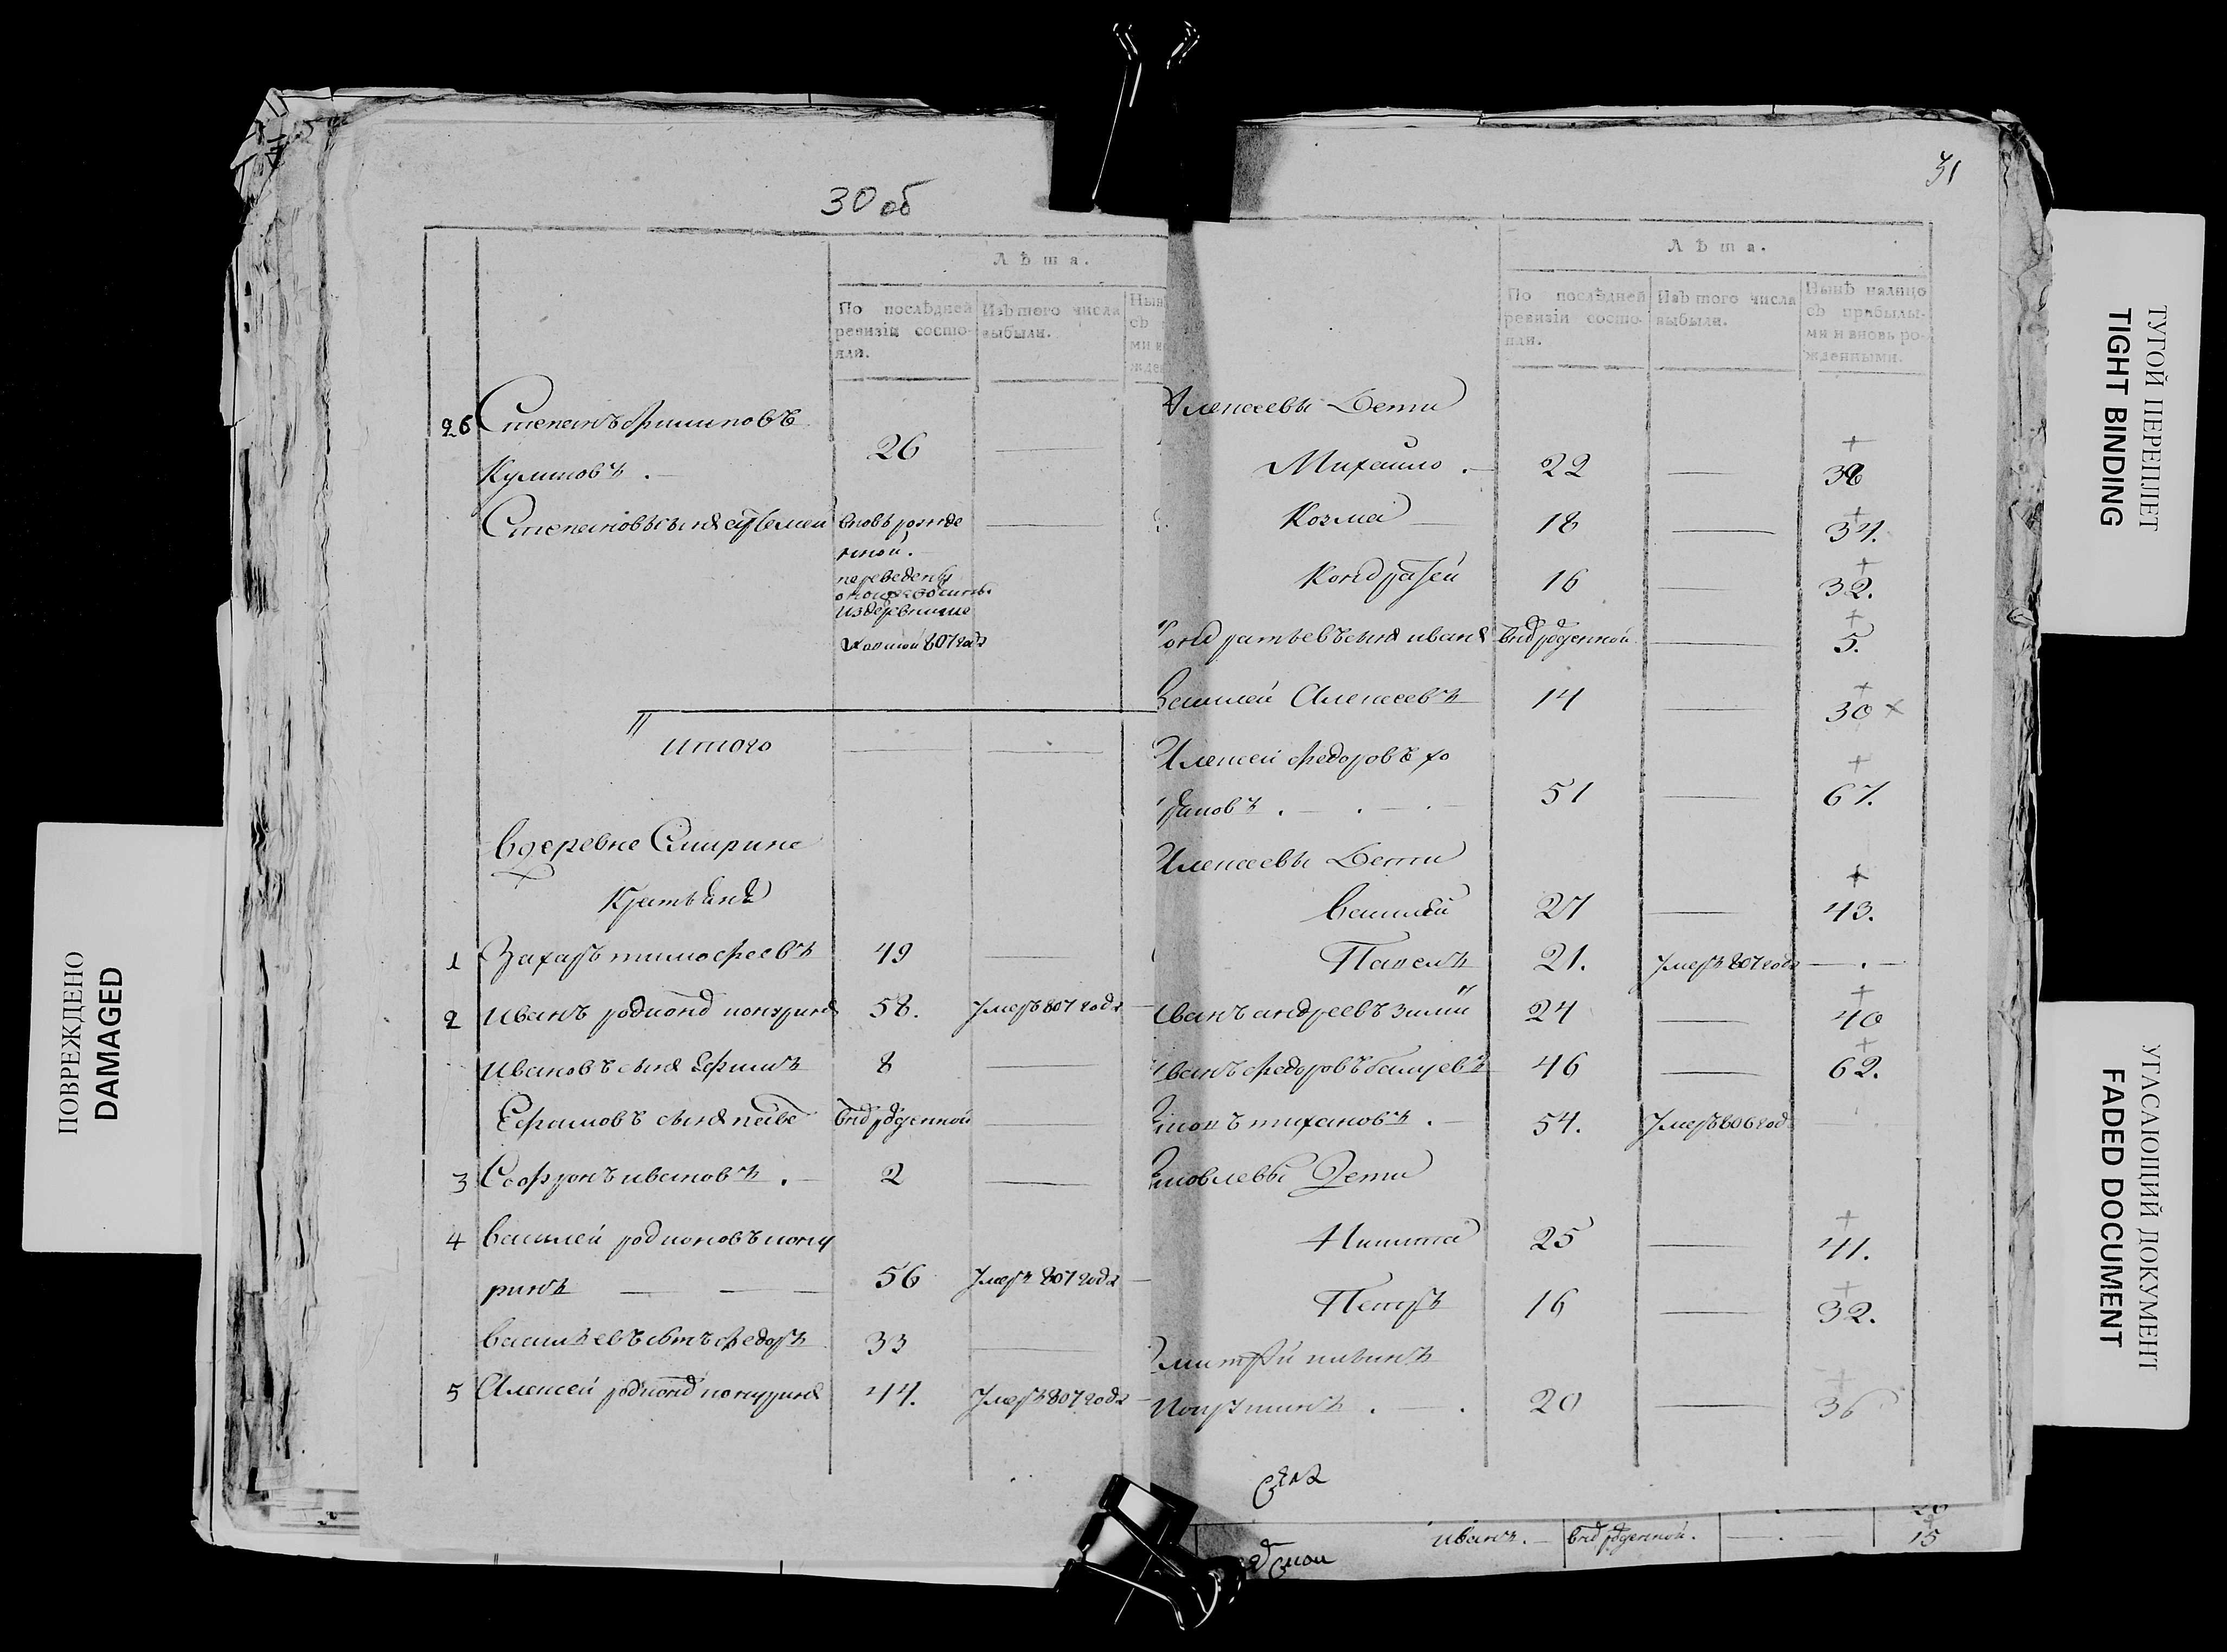 30 об
Лѣта.
По послѣдней ревизіи состояли.
Изъ того числа выбыли.
26 Степанъ Филиповъ
Куликовъ . 26 —
Степановъ сынъ вновь рожде —
нной.
переведены
из деревни
807 года
итого — —
в деревне Смирине
Крестьянъ
1 Захаръ тимофеевъ 49 —
2 иванъ родионо кокурин 58. умеръ 807 года
ивановъ сынъ Ефимъ 8 —
Ефимовъ сынъ павел вно рожденной —
3 Сафронъ ивановъ . 2 —
4 василей родионовъ коку
ринъ — — — 56 умеръ 807 года —
васильевъ сынъ федоръ 33 —
5 Алексей родионо кокурин 44. умеръ 807 года —
31
Лѣта.
По послѣдней ревизіи состояли.
Изъ того числа выбыли.
Нынѣ налицо съ прибылыми и вновь рожденными.
Алексеевы Дети
Михайло . 22 — 38
Козма 18 — 34.
Кондратей 16 — 32.
Кондратьевъ сынъ иван вно рожденной — 5.
Василей Алексеевъ 14 — 30 x
Алексей федоровъ
51 — 67.
Алексеевы Дети
Василей 27 — 43.
Павелъ 21. умеръ 807 года — . —
Иванъ андреевъ зимин 24 — 40
Иванъ федоровъ 46 — 62.
54. умеръ 806 год
Яковлевы Дети
Никита 25 — 41.
Петръ 16 — 32.
Дмитрей
20 — 36
села
иванъ . — вно рожденной . — . — 15
ПОВРЕЖДЕНО
DAMAGED
ТУГОЙ ПЕРЕПЛЕТ
TIGHT BINDING
УГАСАЮЩИЙ ДОКУМЕНТ
FADED DOCUMENT